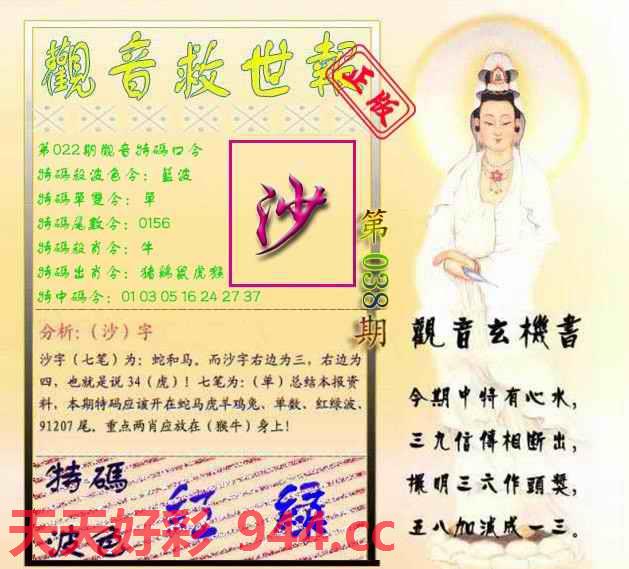 觀音救世報
正版
第022期觀音特碼口令
特碼殺波色令：藍波
特碼單雙令：單
特碼尾數令：0156
特碼殺肖令：牛
特碼出肖令：豬鷄鼠虎猴
特中碼令：01 03 05 16 24 27 37
沙
第038期
分析：（沙）字
沙字（七笔）为：蛇和马。而沙字右边为三，右边为
四、也就是说 34（虎）！七笔为：（单）总结本报资
料，本期特码应该开在蛇马虎羊鸡兔、单数、红绿波、
91207 尾，重点两肖应放在（猴牛）身上！
特碼
波色
紅 綠
天天好彩 944.cc
觀音玄機書
今期中特有心水，
三九信傳相断出，
擺明三六作頭獎，
五八加减成一三。